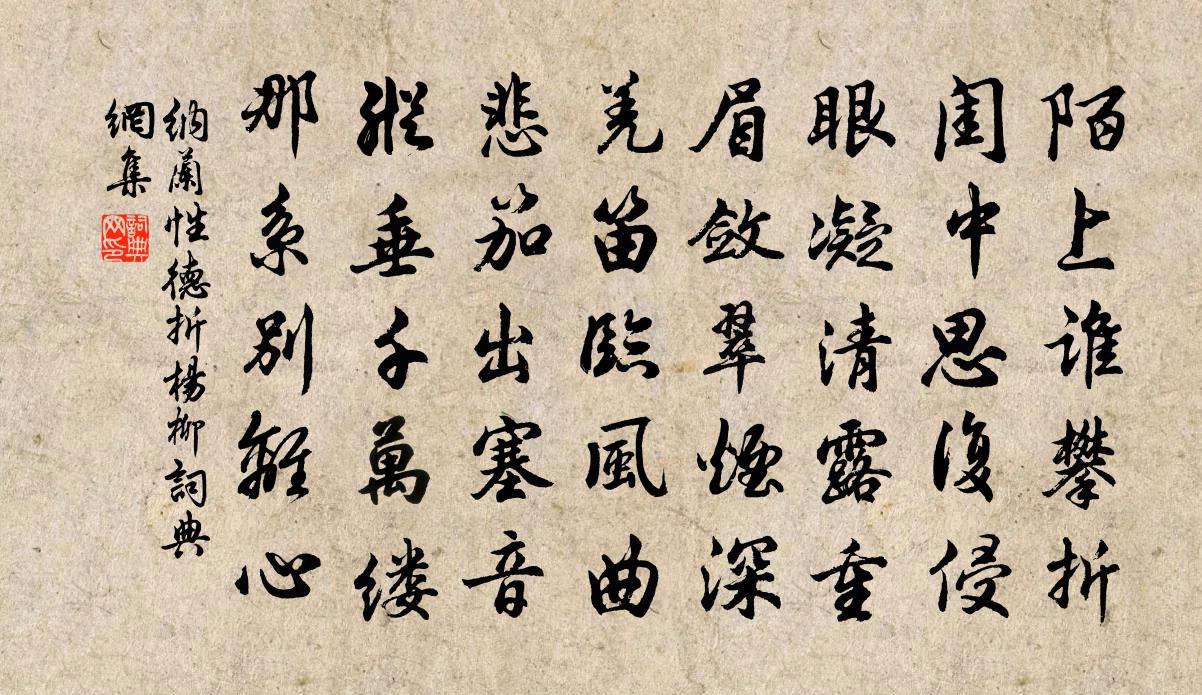 陌上誰攀折
闺中思復侵
眼凝清露重
眉斂翠煙深
羌笛臨風曲
悲笳出塞音
縱垂千萬缕
那系別離心
納蘭性德折楊柳詞典
網集
詞典